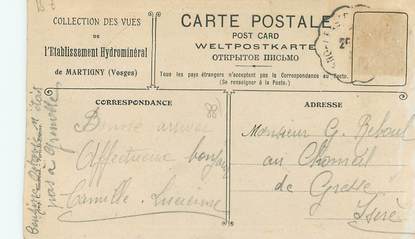 COLLECTION DES VUES
DE
l'Etablissement Hydrominéral
de MARTIGNY (Vosges)
CARTE POSTALE
POST CARD
WELTPOSTKARTE
ОТКРЫТОЕ ПИСЬМО
Tous les pays étrangers n'acceptent pas la Correspondance au Recto.
(Se renseigner à la Poste.)
CORRESPONDANCE
Bonne arrivée
Affectueux
Camille Lucienne
pas à Grenoble
ADRESSE
Monsieur G. Reboul
au
de Gresse
Isère